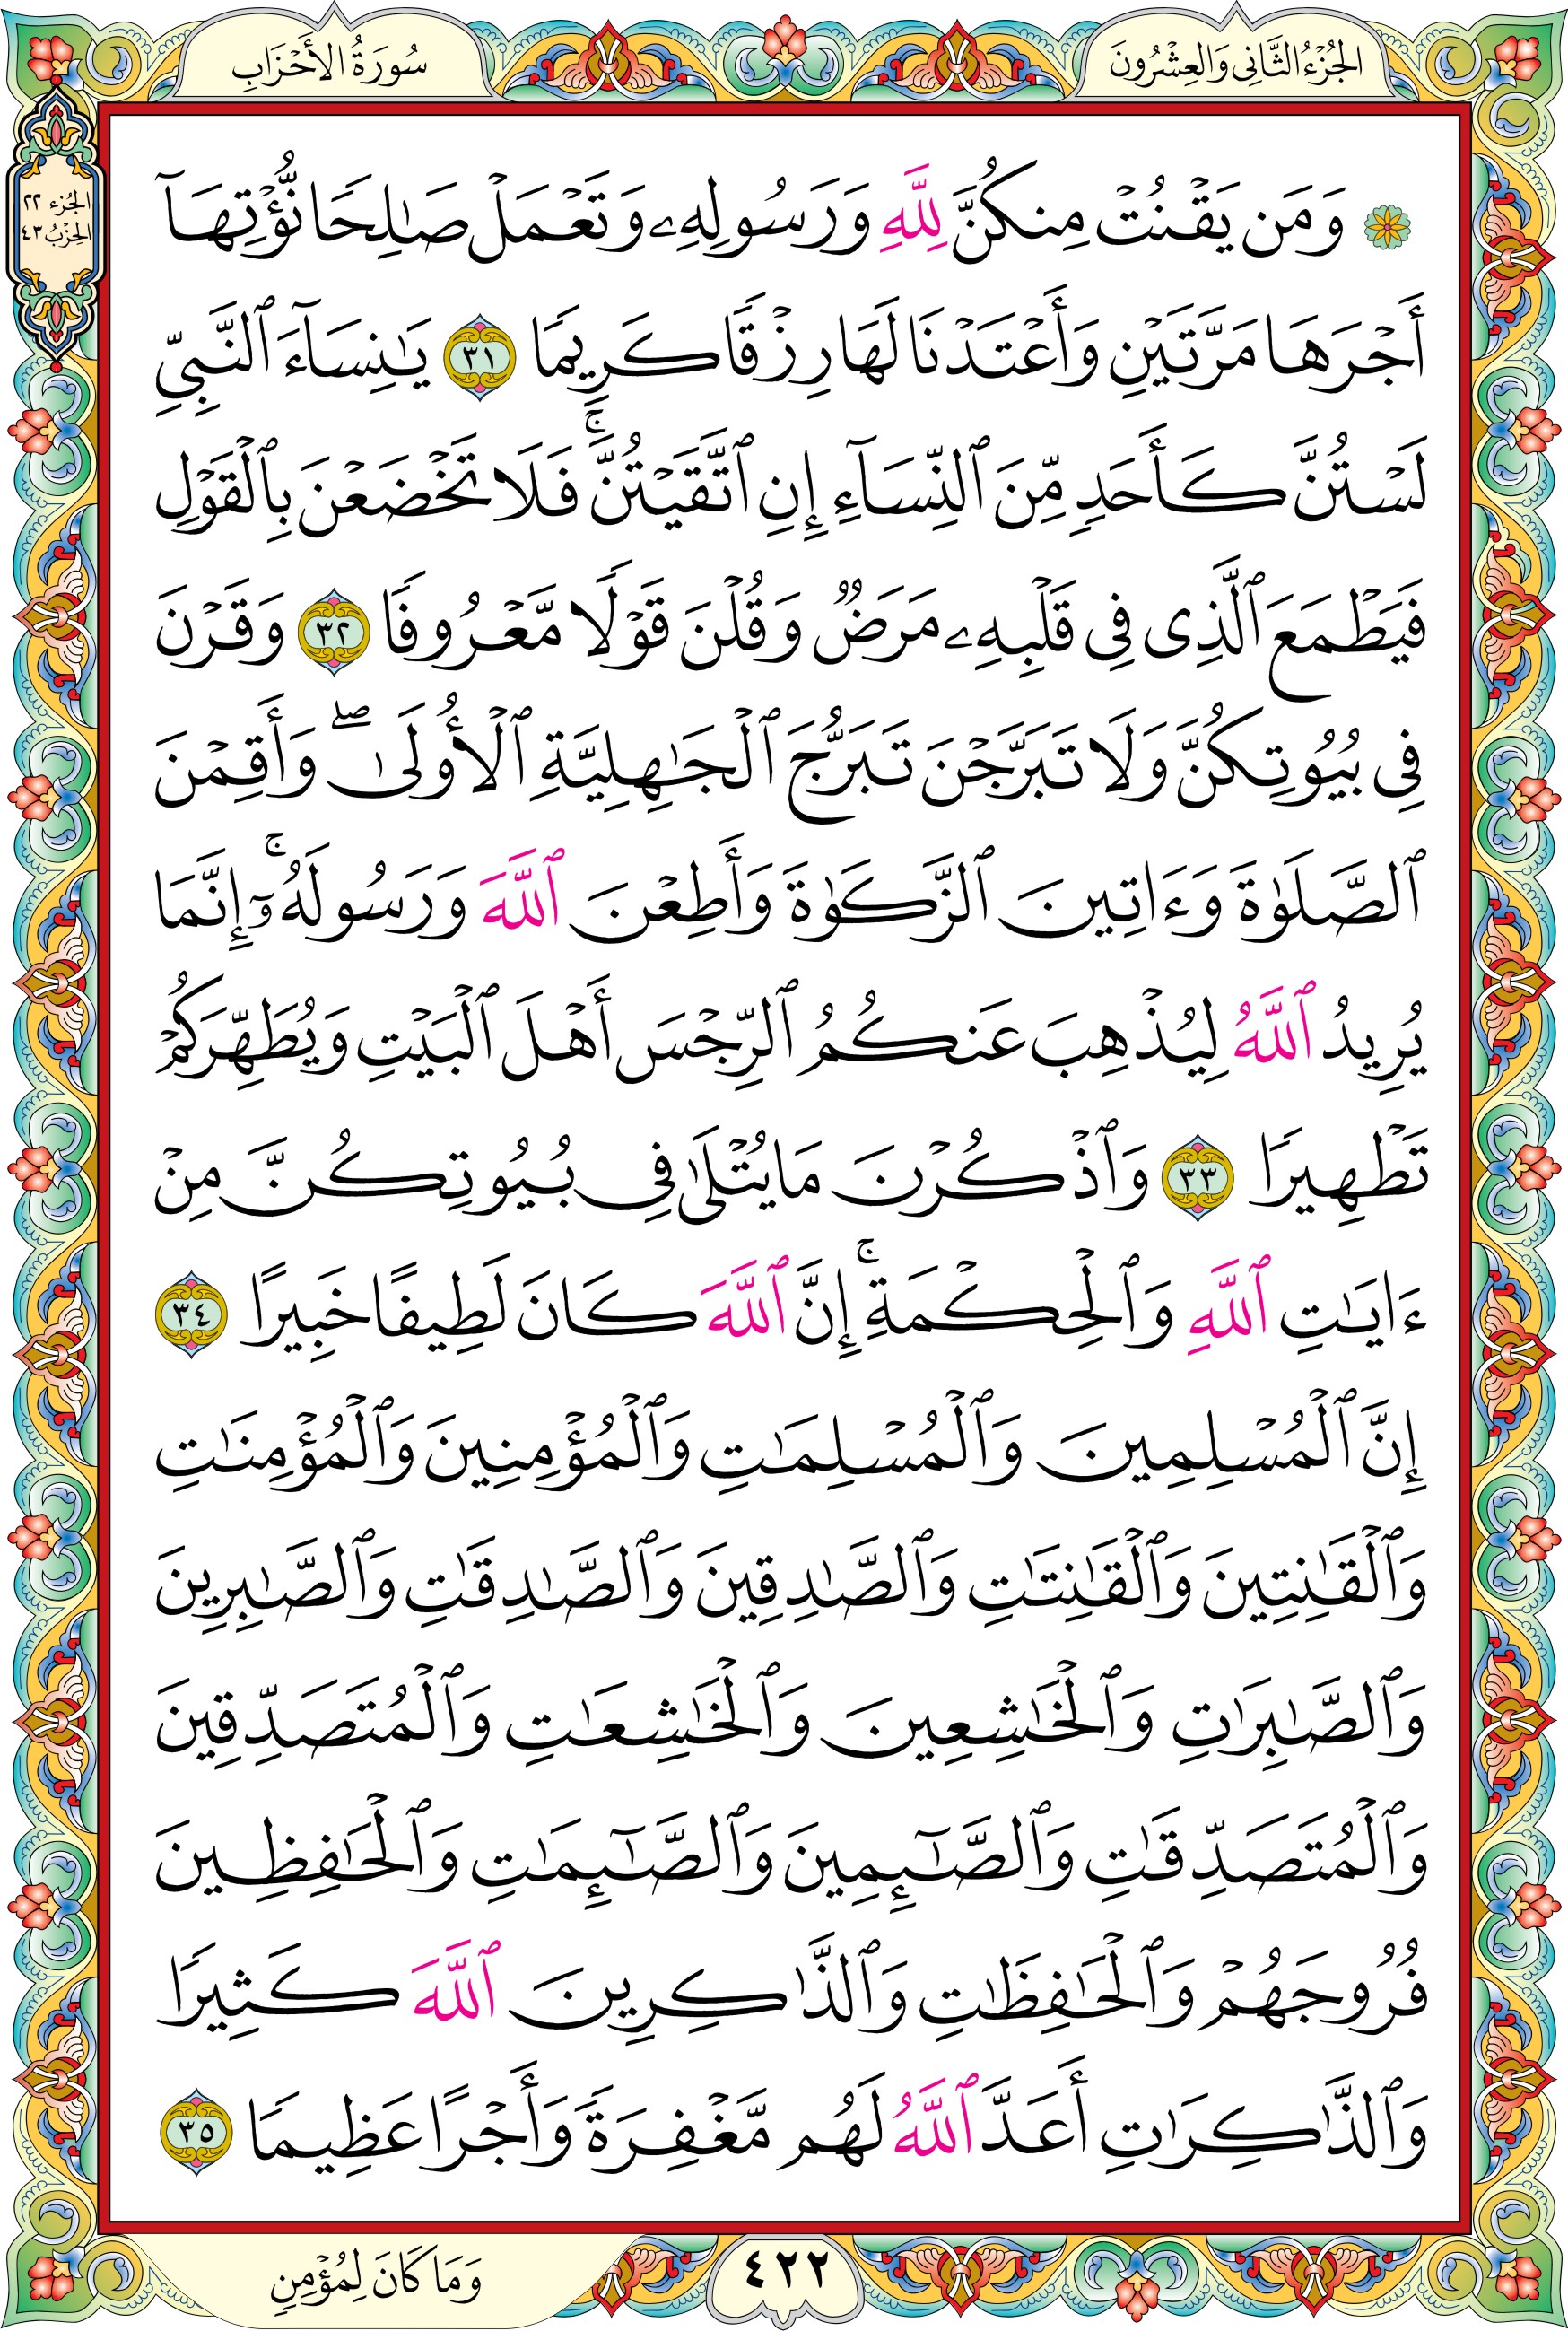 الجُزْءُ الثَّانِي وَالعِشْرُونَ
سُورَةُ الأَحْزَابِ
الجُزء ٢٢
الحِزْبُ ٤٣
۞ وَمَن يَقۡنُتۡ مِنكُنَّ لِلَّهِ وَرَسُولِهِۦ وَتَعۡمَلۡ صَٰلِحٗا نُّؤۡتِهَآ
أَجۡرَهَا مَرَّتَيۡنِ وَأَعۡتَدۡنَا لَهَا رِزۡقٗا كَرِيمٗا ٣١ يَٰنِسَآءَ ٱلنَّبِيِّ
لَسۡتُنَّ كَأَحَدٖ مِّنَ ٱلنِّسَآءِ إِنِ ٱتَّقَيۡتُنَّۚ فَلَا تَخۡضَعۡنَ بِٱلۡقَوۡلِ
فَيَطۡمَعَ ٱلَّذِي فِي قَلۡبِهِۦ مَرَضٞ وَقُلۡنَ قَوۡلٗا مَّعۡرُوفٗا ٣٢ وَقَرۡنَ
فِي بُيُوتِكُنَّ وَلَا تَبَرَّجۡنَ تَبَرُّجَ ٱلۡجَٰهِلِيَّةِ ٱلۡأُولَىٰۖ وَأَقِمۡنَ
ٱلصَّلَوٰةَ وَءَاتِينَ ٱلزَّكَوٰةَ وَأَطِعۡنَ ٱللَّهَ وَرَسُولَهُۥٓۚ إِنَّمَا
يُرِيدُ ٱللَّهُ لِيُذۡهِبَ عَنكُمُ ٱلرِّجۡسَ أَهۡلَ ٱلۡبَيۡتِ وَيُطَهِّرَكُمۡ
تَطۡهِيرٗا ٣٣ وَٱذۡكُرۡنَ مَا يُتۡلَىٰ فِي بُيُوتِكُنَّ مِنۡ
ءَايَٰتِ ٱللَّهِ وَٱلۡحِكۡمَةِۚ إِنَّ ٱللَّهَ كَانَ لَطِيفًا خَبِيرًا ٣٤
إِنَّ ٱلۡمُسۡلِمِينَ وَٱلۡمُسۡلِمَٰتِ وَٱلۡمُؤۡمِنِينَ وَٱلۡمُؤۡمِنَٰتِ
وَٱلۡقَٰنِتِينَ وَٱلۡقَٰنِتَٰتِ وَٱلصَّٰدِقِينَ وَٱلصَّٰدِقَٰتِ وَٱلصَّٰبِرِينَ
وَٱلصَّٰبِرَٰتِ وَٱلۡخَٰشِعِينَ وَٱلۡخَٰشِعَٰتِ وَٱلۡمُتَصَدِّقِينَ
وَٱلۡمُتَصَدِّقَٰتِ وَٱلصَّٰٓئِمِينَ وَٱلصَّٰٓئِمَٰتِ وَٱلۡحَٰفِظِينَ
فُرُوجَهُمۡ وَٱلۡحَٰفِظَٰتِ وَٱلذَّٰكِرِينَ ٱللَّهَ كَثِيرٗا
وَٱلذَّٰكِرَٰتِ أَعَدَّ ٱللَّهُ لَهُم مَّغۡفِرَةٗ وَأَجۡرًا عَظِيمٗا ٣٥
٤٢٢
وَمَا كَانَ لِمُؤۡمِنٖ